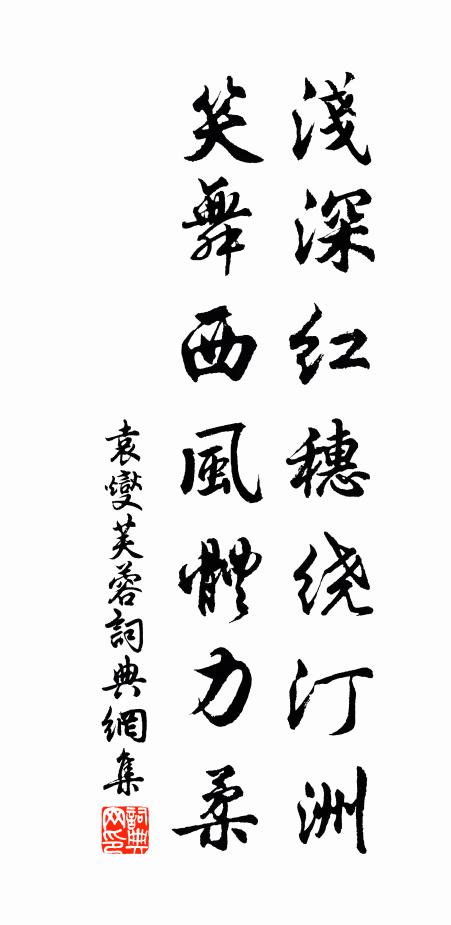 淺深红穗绕汀洲
笑舞西風體力柔
袁燮芙蓉詞典網集
詞典网印